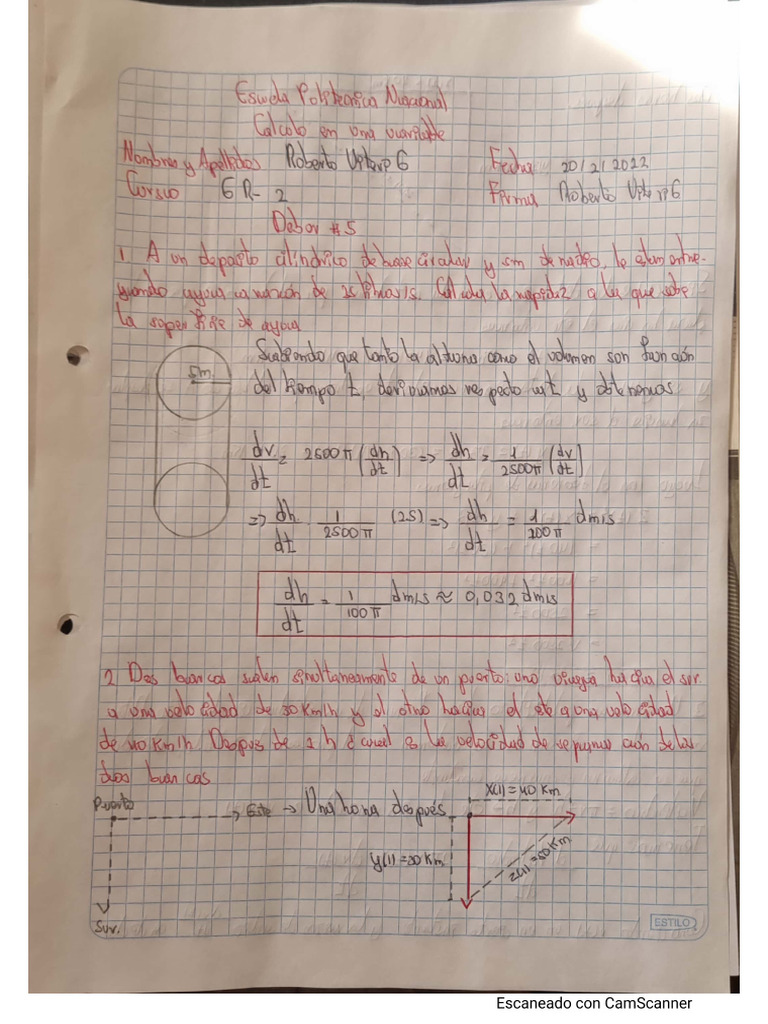 Escuela Politecnica Nacional
Calculo en una variable
Nombres y Apellidos Roberto Viteri G Fecha 20/2/2022
Curso GR-2 Firma Roberto Viteri G
Deber #5
1. A un deposito cilindrico de base circular y 5m de radio, le estan entre-
gando agua a razón de 25 litros/s. Calcula la rapidez a la que sube
la superficie de agua
5m.
Sabiendo que tanto la altura como el volumen son función
del tiempo t, derivamos respecto a t y obtenemos
dv/dt = 2500π (dh/dt) => dh/dt = 1/2500π (dv/dt)
=> dh/dt 1/2500π (25) => dh/dt = 1/100π dm/s
dh/dt = 1/100π dm/s ≈ 0,032 dm/s
2 Dos barcos salen simultaneamente de un puerto: uno viagra hacia el sur
a una velocidad de 30 Km/h y el otro hacia el este a una velocidad
de 40 Km/h Despues de 1 h ¿cual es la velocidad de separación de los
dos barcos
Puerto Este → Una hora después X(1) = 40 Km
y(1) = 30 Km Z(1) = 50 Km
Sur.
ESTILO
Escaneado con CamScanner